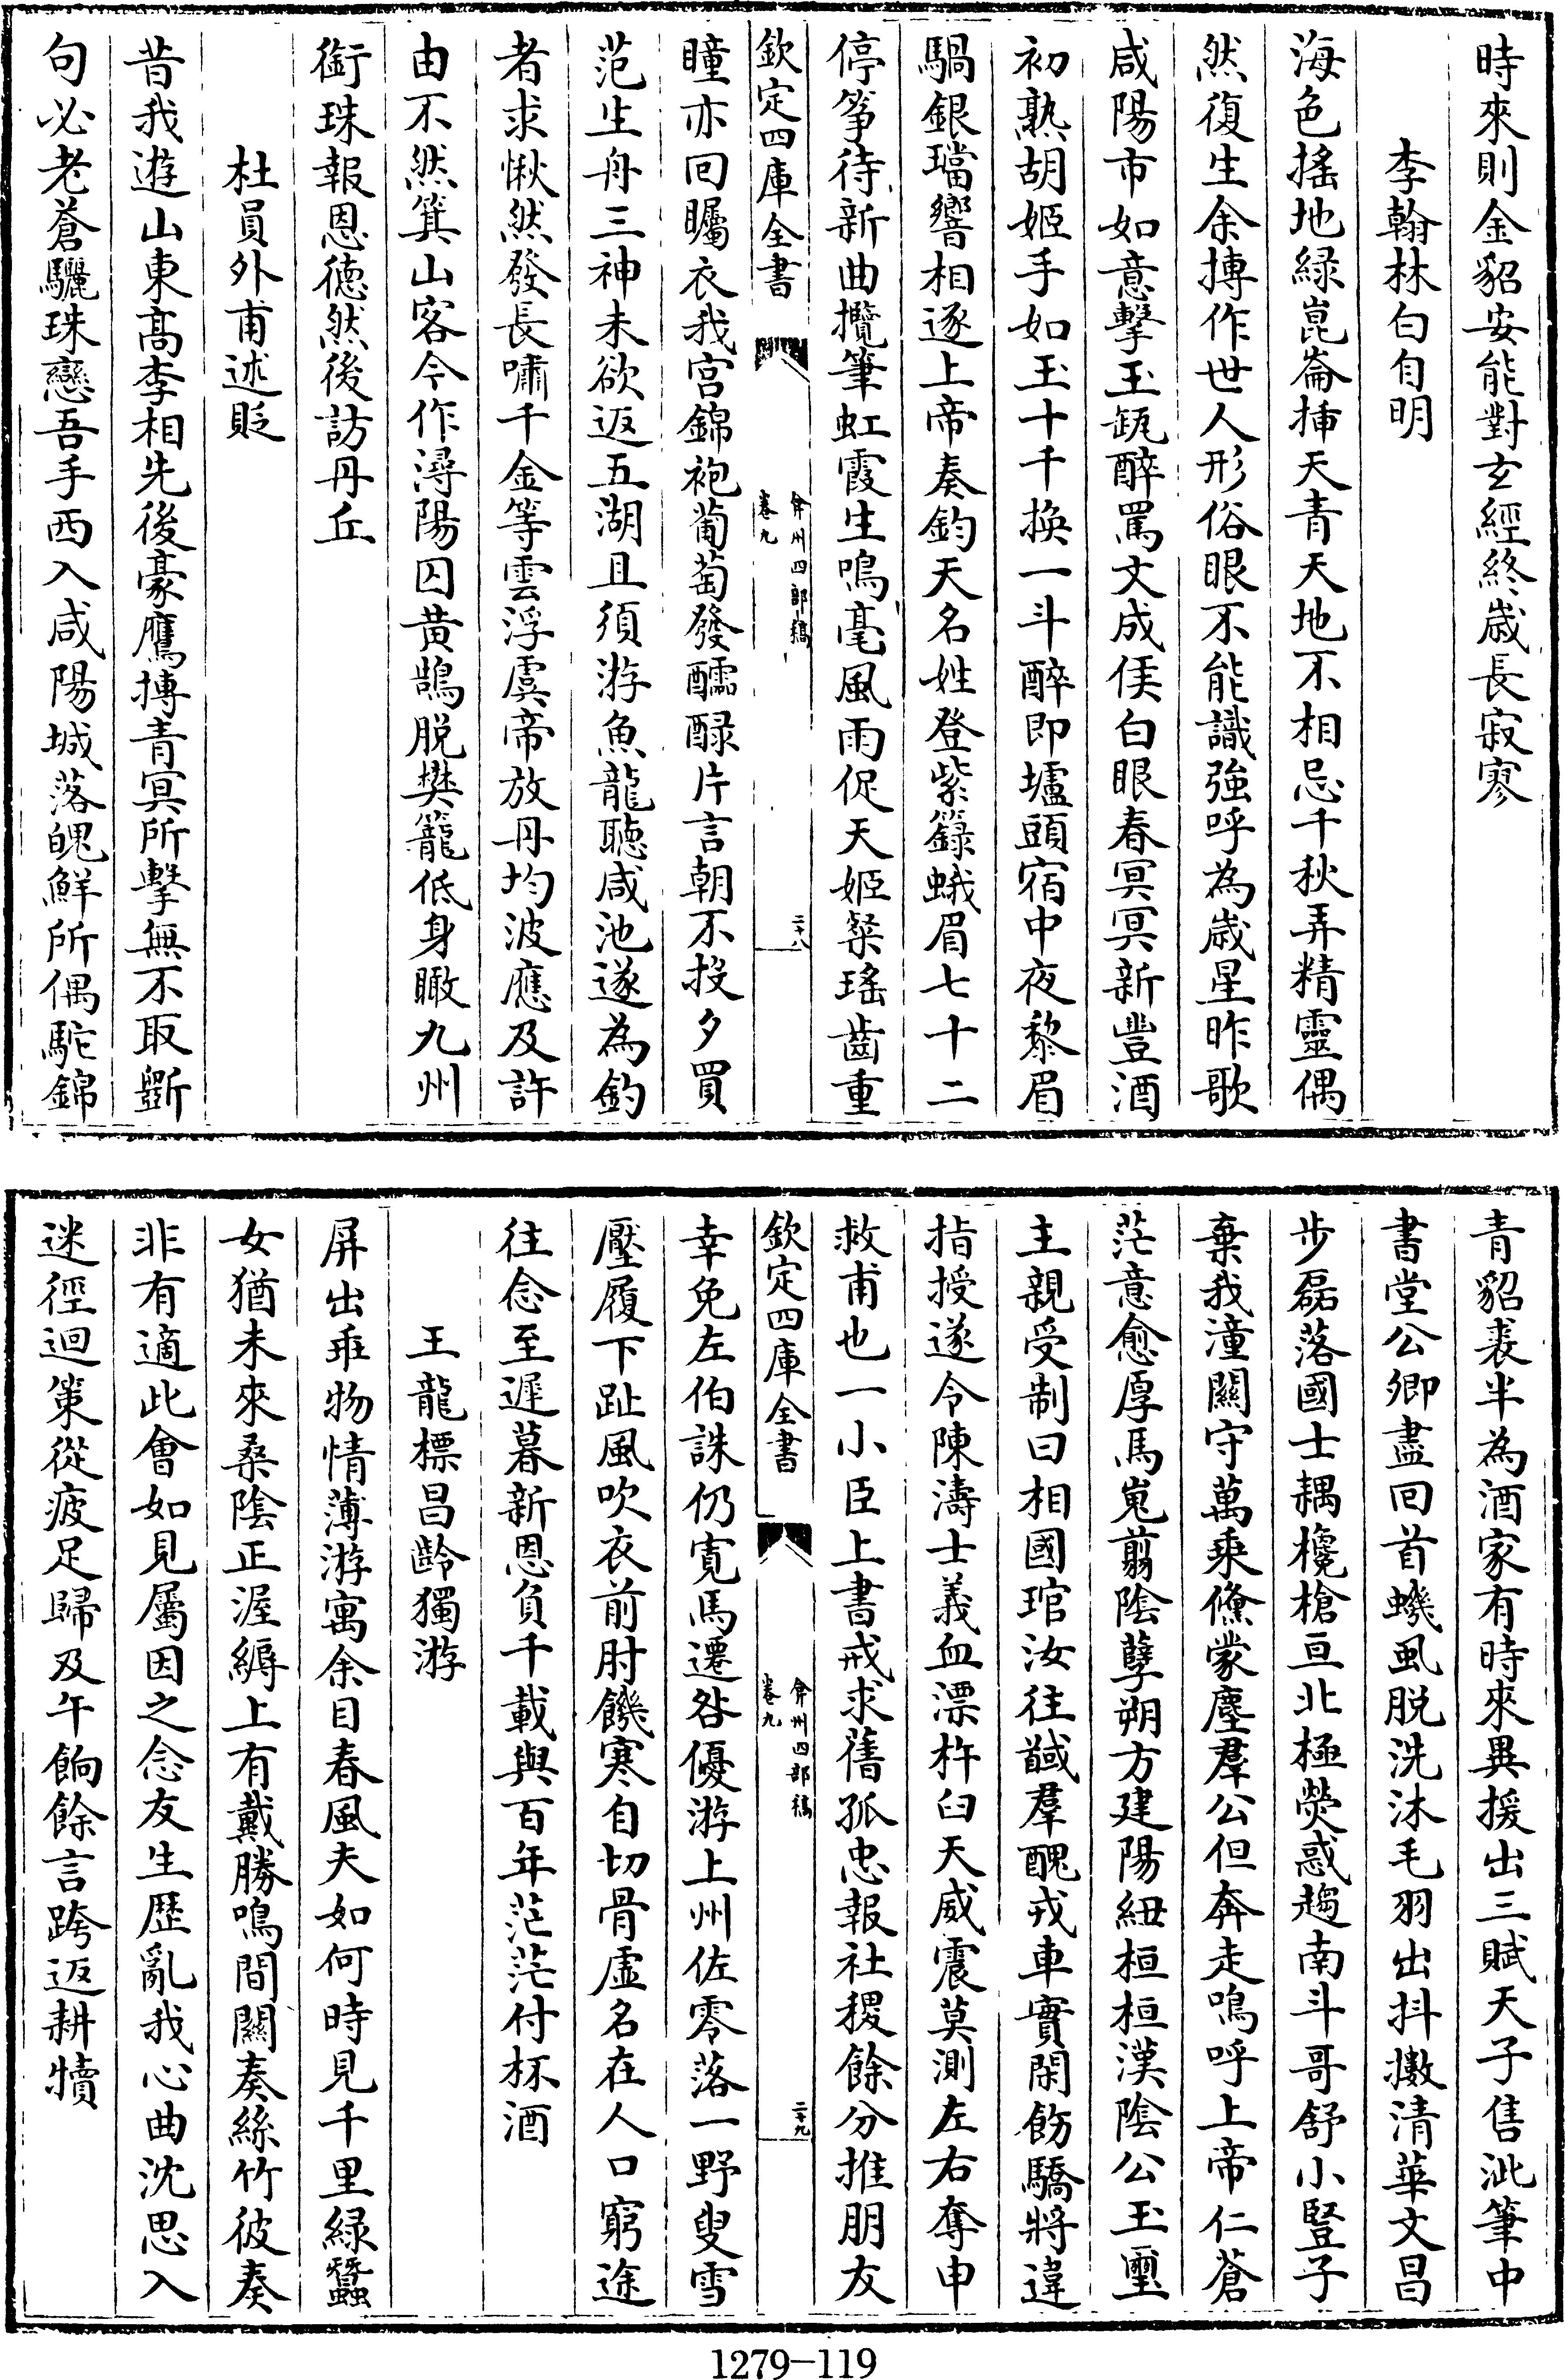 時來則金貂安能對玄經終歲長寂寥
李翰林白自明
海色搖地緑崑崙揷天青天地不相忌千秋弄精靈偶
然復生余摶作世人形俗眼不能識強呼為歲星昨歌
咸陽市如意擊玉缻醉罵文成侯白眼春冥冥新豐酒
初熟胡姬手如玉十千換一斗醉即壚頭宿中夜黎眉
騧銀璫響相逐上帝奏鈞天名姓登紫籙蛾眉七十二
停箏待新曲攬筆虹霞生鳴毫風雨促天姬粲瑤齒重
欽定四庫全書
弇州四部稿
卷九
二十八
瞳亦回矚衣我宮錦袍葡萄發醽醁片言朝不投夕買
范生舟三神未欲返五湖且須游魚龍聽咸池遂為釣
者求愀然發長嘯千金等雲浮虞帝放丹均波應及許
由不然箕山客今作潯陽囚黃鵠脱樊籠低身瞰九州
銜珠報恩德然後訪丹丘
杜員外甫述貶
昔我遊山東髙李相先後豪鷹摶青冥所擊無不取斵
句必老蒼驪珠戀吾手西入咸陽城落魄鮮所偶駝錦
青貂裘半為酒家有時來異援出三賦天子售泚筆中
書堂公卿盡回首蟣虱脱洗沐毛羽出抖擻清華文昌
步磊落國士耦欃槍亘北極熒惑趨南斗哥舒小豎子
棄我潼關守萬乘倏蒙塵羣公但奔走鳴呼上帝仁蒼
茫意愈厚馬嵬翦陰孽朔方建陽紐桓桓漢陰公玉璽
主親受制曰相國琯汝往馘羣醜戎車實閑飭驕將違
指授遂令陳濤士義血漂杵臼天威震莫測左右奪申
救甫也一小臣上書戒求舊孤忠報社稷餘分推朋友
欽定四庫全書
弇州四部稿
卷九
二十九
幸免左伯誅仍寛馬遷咎優游上州佐零落一野叟雪
壓履下趾風吹衣前肘饑寒自切骨虛名在人口窮途
往念至遲暮新恩負千載與百年茫茫付杯酒
王龍標昌齡獨游
屏出乖物情薄游寓余目春風夫如何時見千里緑蠶
女猶未來桑陰正渥縟上有戴勝鳴間關奏絲竹彼奏
非有適此會如見屬因之念友生歴亂我心曲沈思入
迷徑迴策從疲足歸及午餉餘言跨返耕犢
1279-119